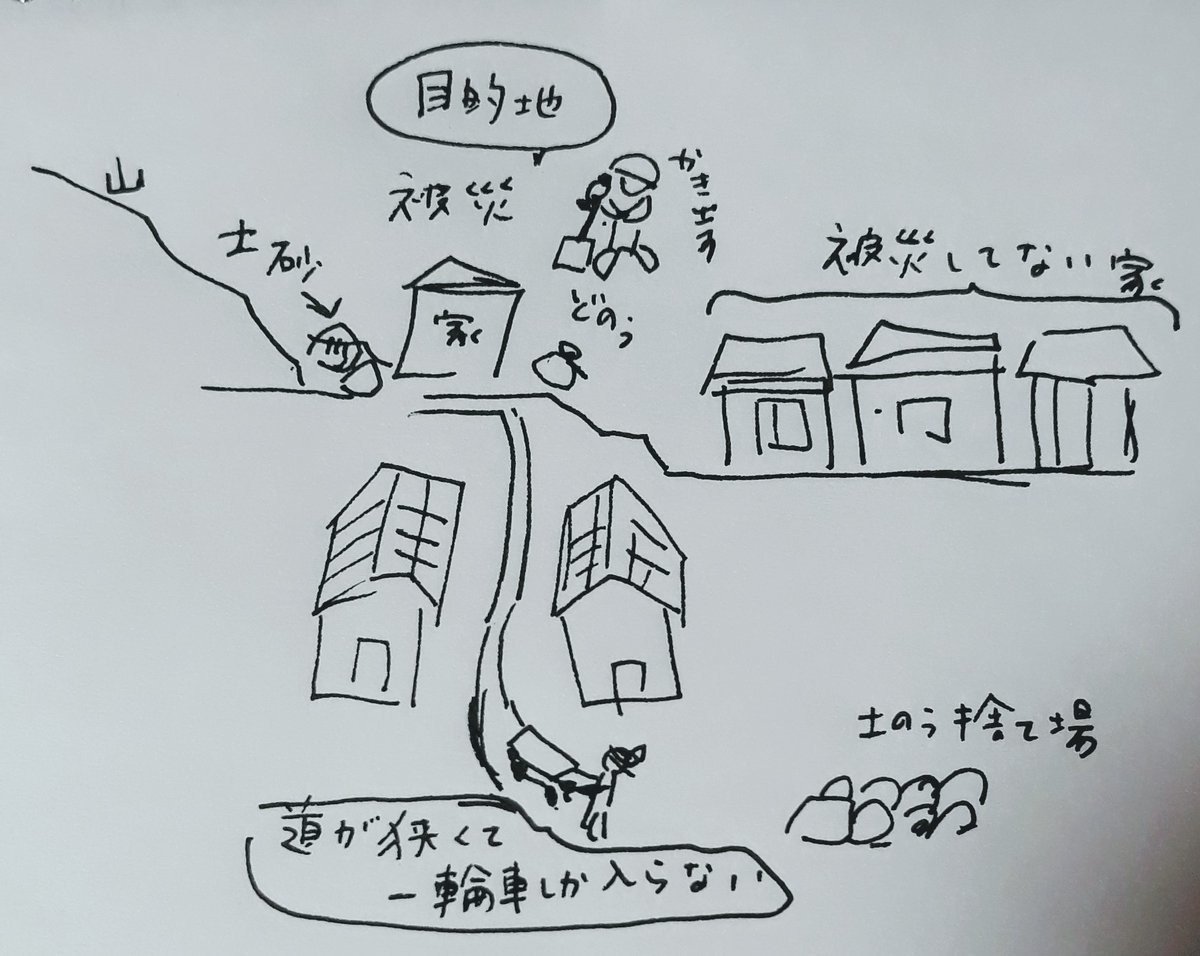 目的地
山
被災
かき出す
土砂
被災してない家
家
どのう
土のう捨て場
道が狭くて
一輪車しか入らない